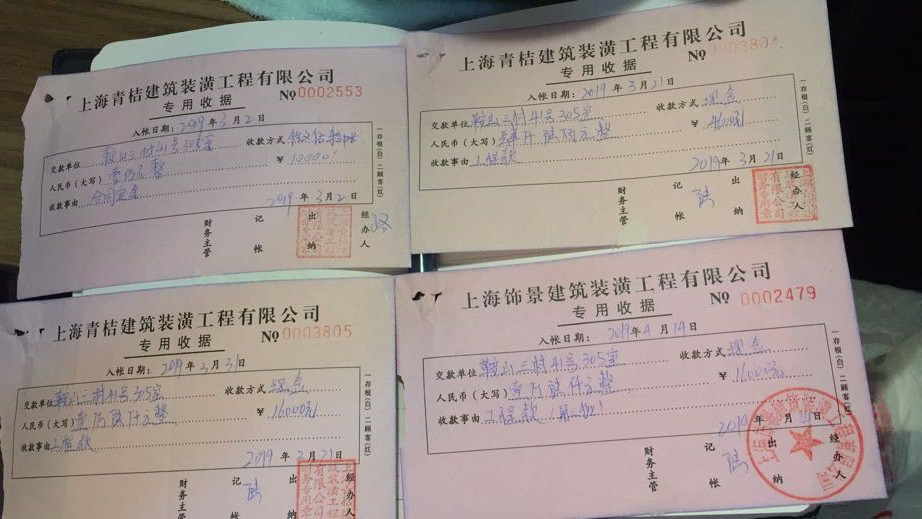 上海青桔建筑装潢工程有限公司
专用收据
No 0002553
入帐日期：2019年3月2日
交款单位 鞍山三村41号305室 收款方式
人民币（大写）壹万元整 ¥ 10000
收款事由 合同定金
2019年3月2日
财务主管 记帐 出纳 经办人
一存根（白）二顾客（红）
上海青桔建筑装潢工程有限公司
专用收据
No 0003804
入帐日期：2019年3月21日
交款单位 鞍山三村41号305室 收款方式 现金
人民币（大写）肆仟陆佰元整 ¥ 4600元
收款事由 工程款
2019年3月21日
财务主管 记帐 出纳 经办人
一存根（白）二顾客（红）
上海青桔建筑装潢工程有限公司
专用收据
No 0003805
入帐日期：2019年3月31日
交款单位 鞍山三村41号305室 收款方式 现金
人民币（大写）壹万陆仟元整 ¥ 16000元
收款事由 工程款
2019年3月21日
财务主管 记帐 出纳 经办人
一存根（白）二顾客（红）
上海饰景建筑装潢工程有限公司
专用收据
No 0002479
入帐日期：2019年4月14日
交款单位 鞍山三村41号305室 收款方式 现金
人民币（大写）壹万陆仟元整 ¥ 16000元
收款事由 工程款
2019年 月14日
财务主管 记帐 出纳 经办人
一存根（白）二顾客（红）